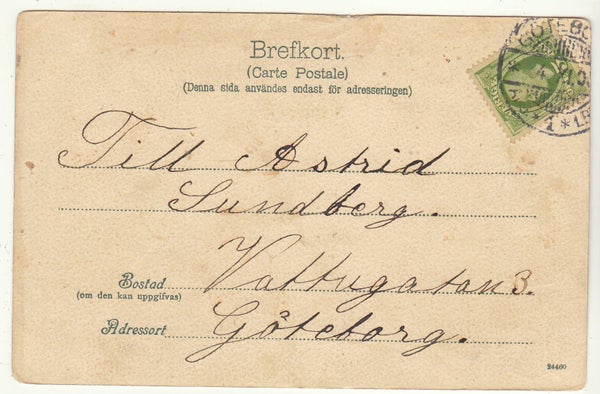 Brefkort.
(Carte Postale)
(Denna sida användes endast för adresseringen)
GÖTEBO
1 * 1.B
Till Astrid
Sundberg.
Vattugatan 3.
Bostad
(om den kan uppgifvas)
Göteborg.
Adressort
24460